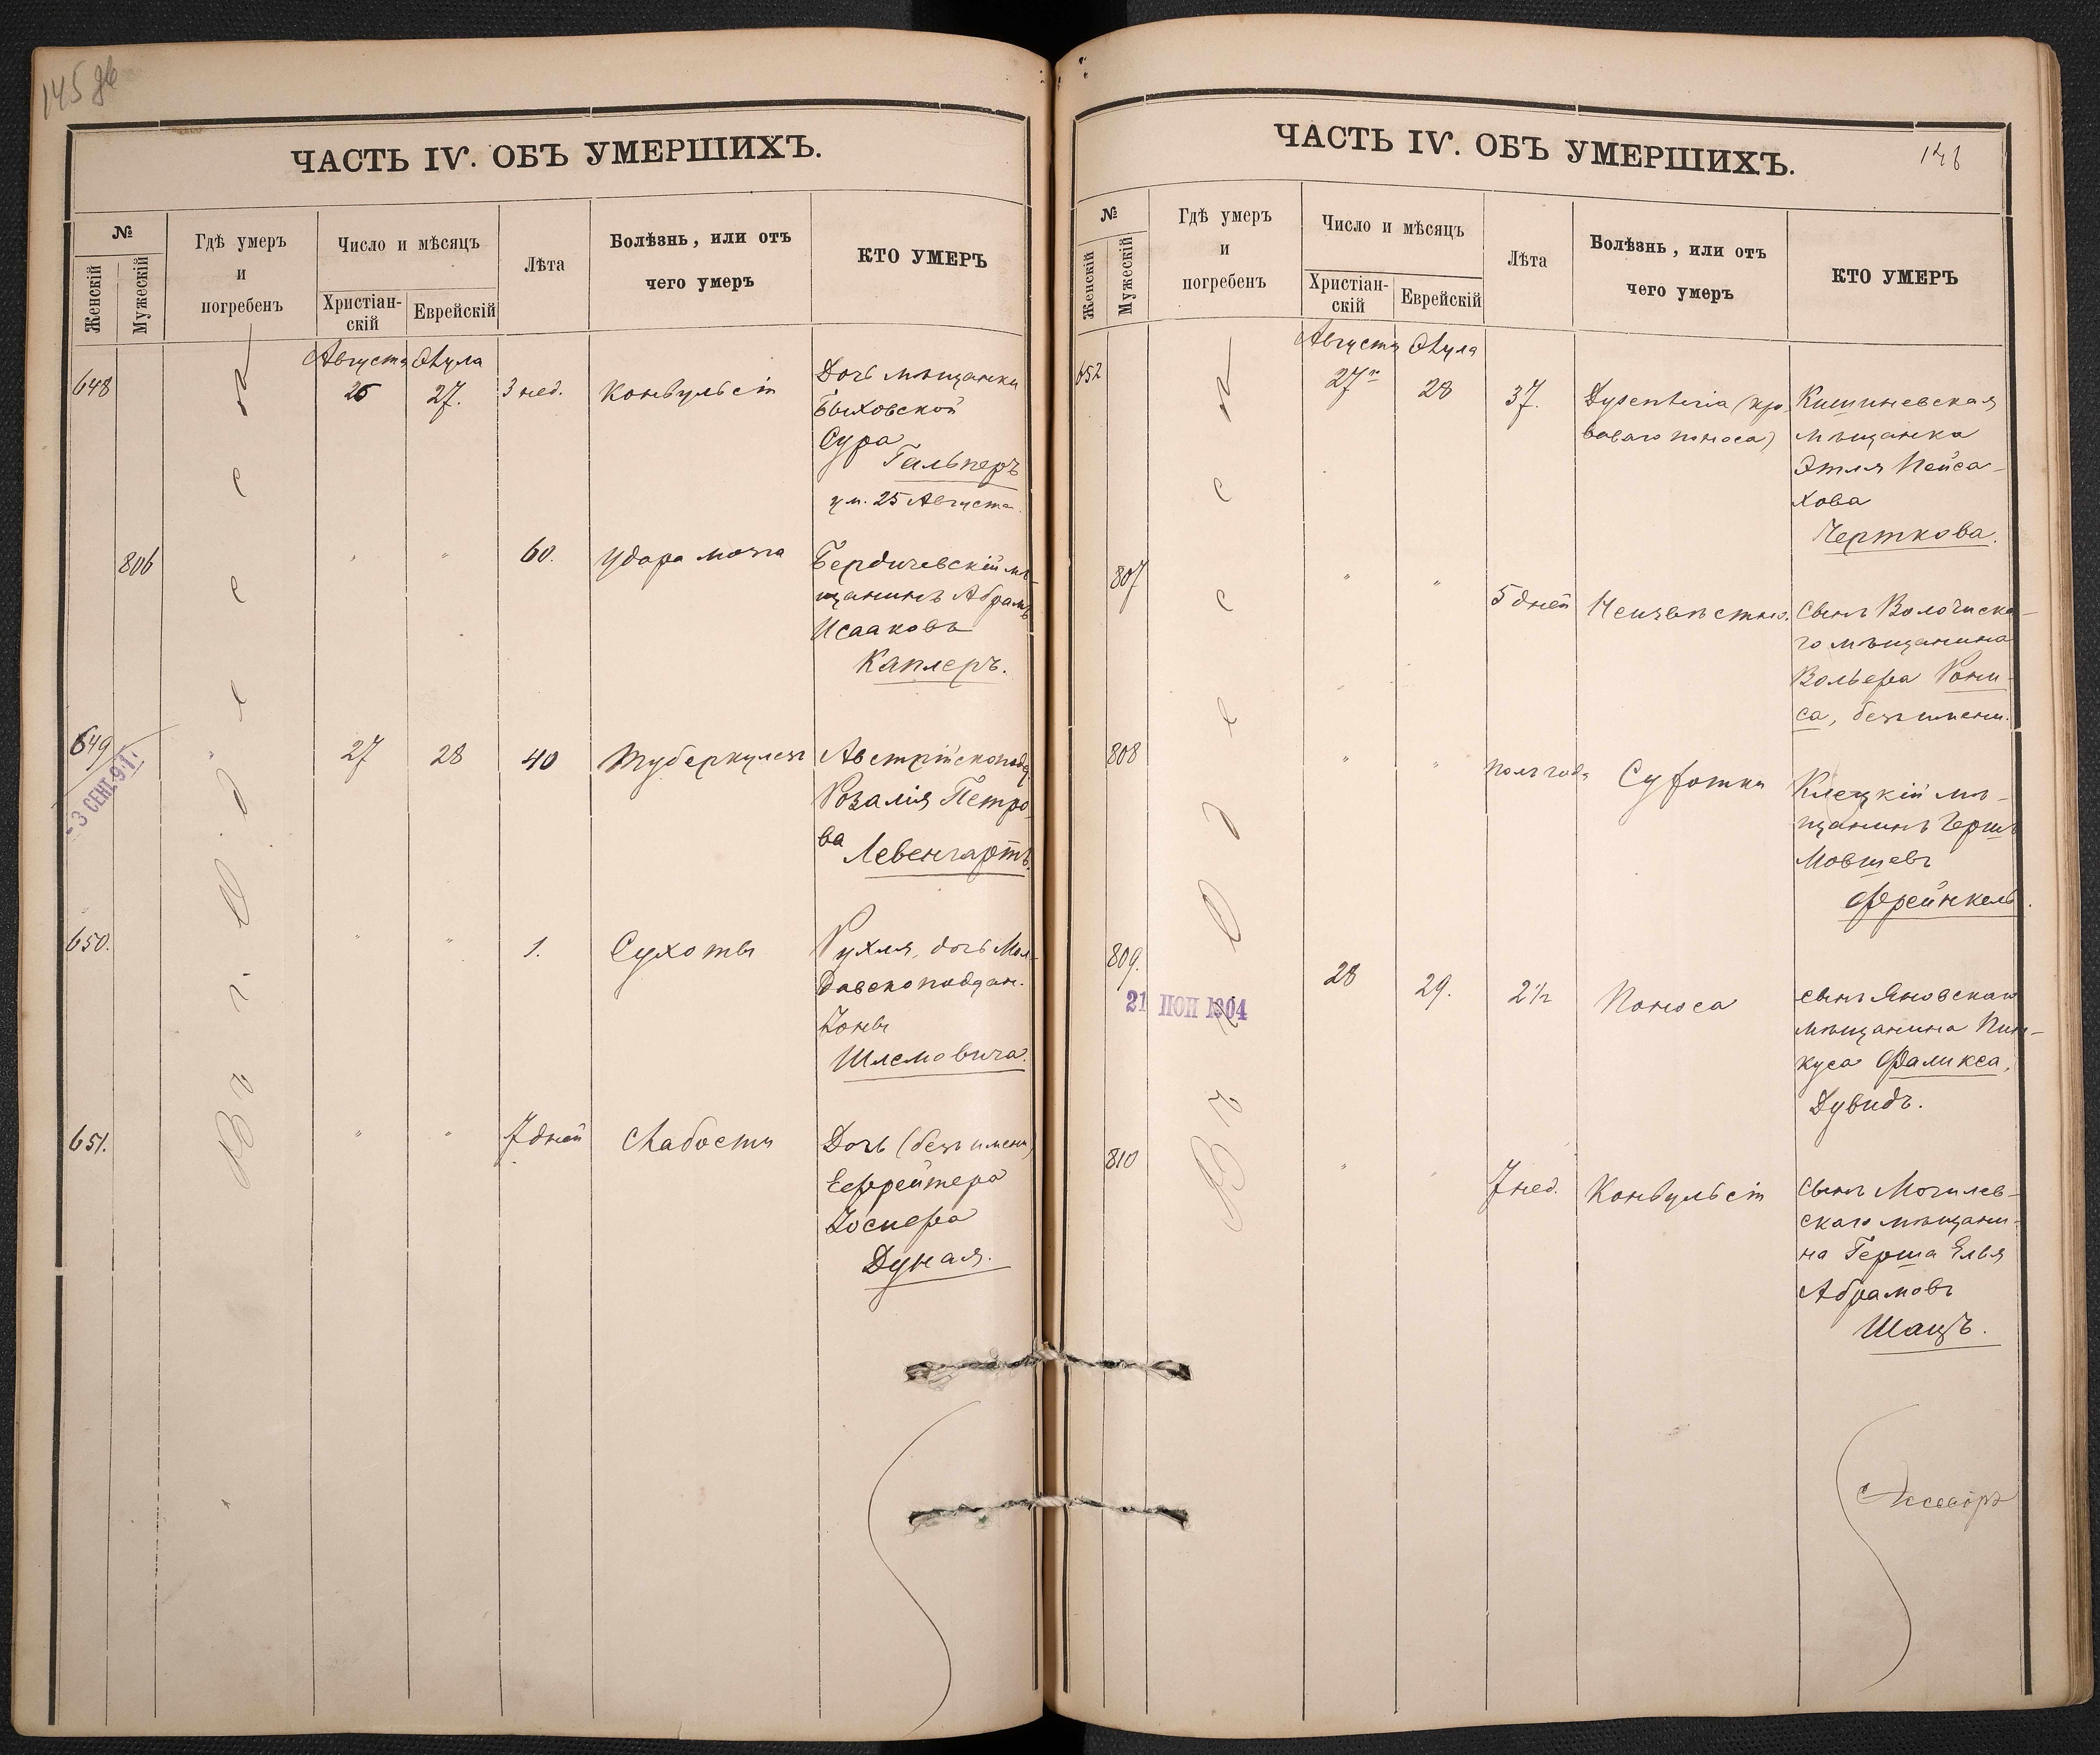 145 об
ЧАСТЬ IV. ОБЪ УМЕРШИХЪ.
№
Женскій
Мужескій
Гдѣ умеръ
и
погребенъ
Число и мѣсяцъ
Христіан-
скій
Еврейскій
Лѣта
Болѣзнь, или отъ
чего умеръ
КТО УМЕРЪ
Въ г. Одессѣ
Августа Элула
648 26 27. 3 нед. Конвульсіи Дочь мѣщанки
Быховской
Сура
Гальперъ
ум. 25 Августа.
806 " " 60. Удара мозга Бердичевскій мѣ-
щанинъ Абрамъ
Исааковъ
Каплеръ.
649 27 28 40 Туберкулезъ Австрійскопод.
- 3 СЕНТ. 91.
Розалія Петро-
ва
Левенгартъ.
650. " " 1. Сухоты Рухля, дочь Мол-
давскоподдан.
Іоны
Шлемовича.
651. " " 7 дней Слабости Дочь (безъ имени)
Ефрейтера
Іосифа
Дуная.
146
ЧАСТЬ IV. ОБЪ УМЕРШИХЪ.
№
Женскій
Мужескій
Гдѣ умеръ
и
погребенъ
Число и мѣсяцъ
Христіан-
скій
Еврейскій
Лѣта
Болѣзнь, или отъ
чего умеръ
КТО УМЕРЪ
Въ г. Одессѣ
Августа Элула
652 27 28 37. Dysenteria (кро
ваваго поноса)
Кишиневская
мѣщанка
Этля Пейса-
хова
Черткова.
807 " " 5 дней Неизвѣстно. Сынъ Волочиска-
го мѣщанина
Вольфа Рони-
са, безъ имени.
808 " " полъ года Сухотки Клецкій мѣ-
щанинъ Герш
Мовшевъ
Френкель.
809. 28 29. 2½ Поноса Сынъ Яновскаго
21 ІЮН 1904
мѣщанина Пин-
куса Фаликса,
Дувидъ.
810 " " 7 нед. Конвульсіи Сынъ Могилев-
скаго мѣщани-
на Герша Елья
Абрамовъ
Шацъ.